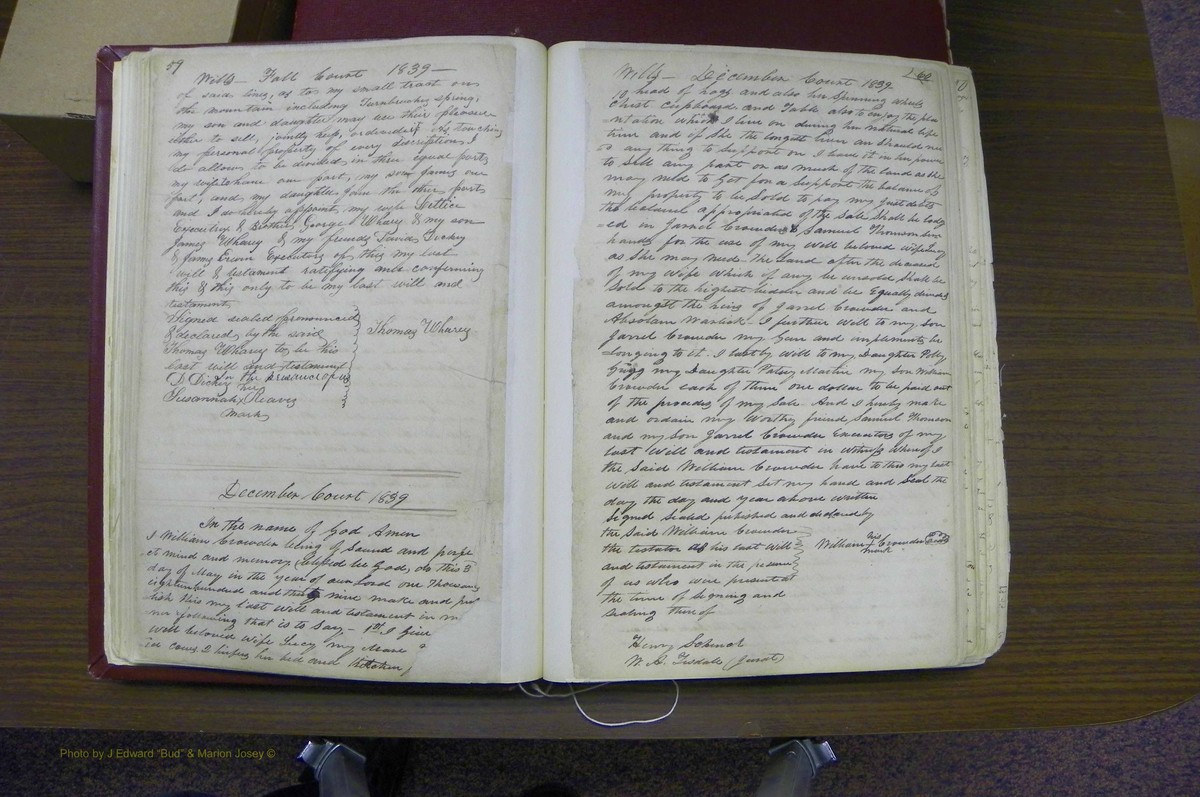 59
Wills — Fall Court 1839 —
of said lines, as to my small tract on
the mountain including Turnbreaker spring,
my son and daughter may use their pleasure
either to sell, jointly keep, or divide it As touching
my personal property of every discription, I
do allow to be divided in three equal parts
my wife to have one part, my son James one
part, and my daughter Jane the other part
and I do hereby appoint, my wife Lettice
Executrix & Brother George Wharey & my son
James Wharey & my friends David Dickey
& James Erwin Executors of this my last
will & testament ratifying and confirming
this & this only to be my last will and
testament,
Signed sealed pronounced
& declared by the said
Thomas Wharey to be his
last will and testament
In the presence of us
D. Dickey
her
Susannah X Reaves
mark
Thomas Wharey
December Court 1839
In the name of God Amen
I William Crowder being of Sound and perfe
ct mind and memory blessed be God, do this 3
day of May in the year of our Lord one Thousand
eighteen hundred and thirty nine make and pub
lish this my last will and testament in m
nr following that is to Say — 1st I Give
well beloved Wife Lucy my Mare
cows 2 her bed and kitchen
60
Wills — December Court 1839
10 head of hogs and also her Spinning wheel
Chest cupboard and Table also to enjoy the pla
ntation which I live on during her natural life
time and if She the longest liver an Should ne
any thing to Support on I have it in her power
to Sell any part or as much of the land as she
may need to Get for a Support the balance of
my property to be Sold to pay my Just debts
the balance appropriated of the Sale Shall be lodg
=ed in Jarrel Crowders & Samuel Thomson
hands for the use of my well beloved wife Lucy
as She may need. The Land after the deceased
of my Wife Which if any be unsold Shall be
Sold to the highest bidder and be Equally divided
amongst the heirs of Jarrel Crowder and
Absolam Warlick — I further Will to my son
Jarrel Crowder my Gun and implements be
=longing to it. I also by Will to my Daughter Polly
Grigg my Daughter Patsey Martin my Son William
Crowder each of them one dollar to be paid out
of the procedes of my Sale. And I hereby make
and ordain my Worthy friend Samuel Thomson
and my Son Jarrel Crowder Executors of my
last Will and testament in witness Whereof I
the Said William Crowder have to this my last
Will and testament Set my hand and Seal the
day the day and year above written
Signed Sealed published and declared by
the Said William Crowder
the testator as his last Will
and testament in the presence
of us who were present at
the time of Signing and
Sealing thereof
his
William X Crowder Seal
mark
Henry Schenck
W. A. Tisdale (Jurat)
Photo by J Edward "Bud" & Marion Josey ©